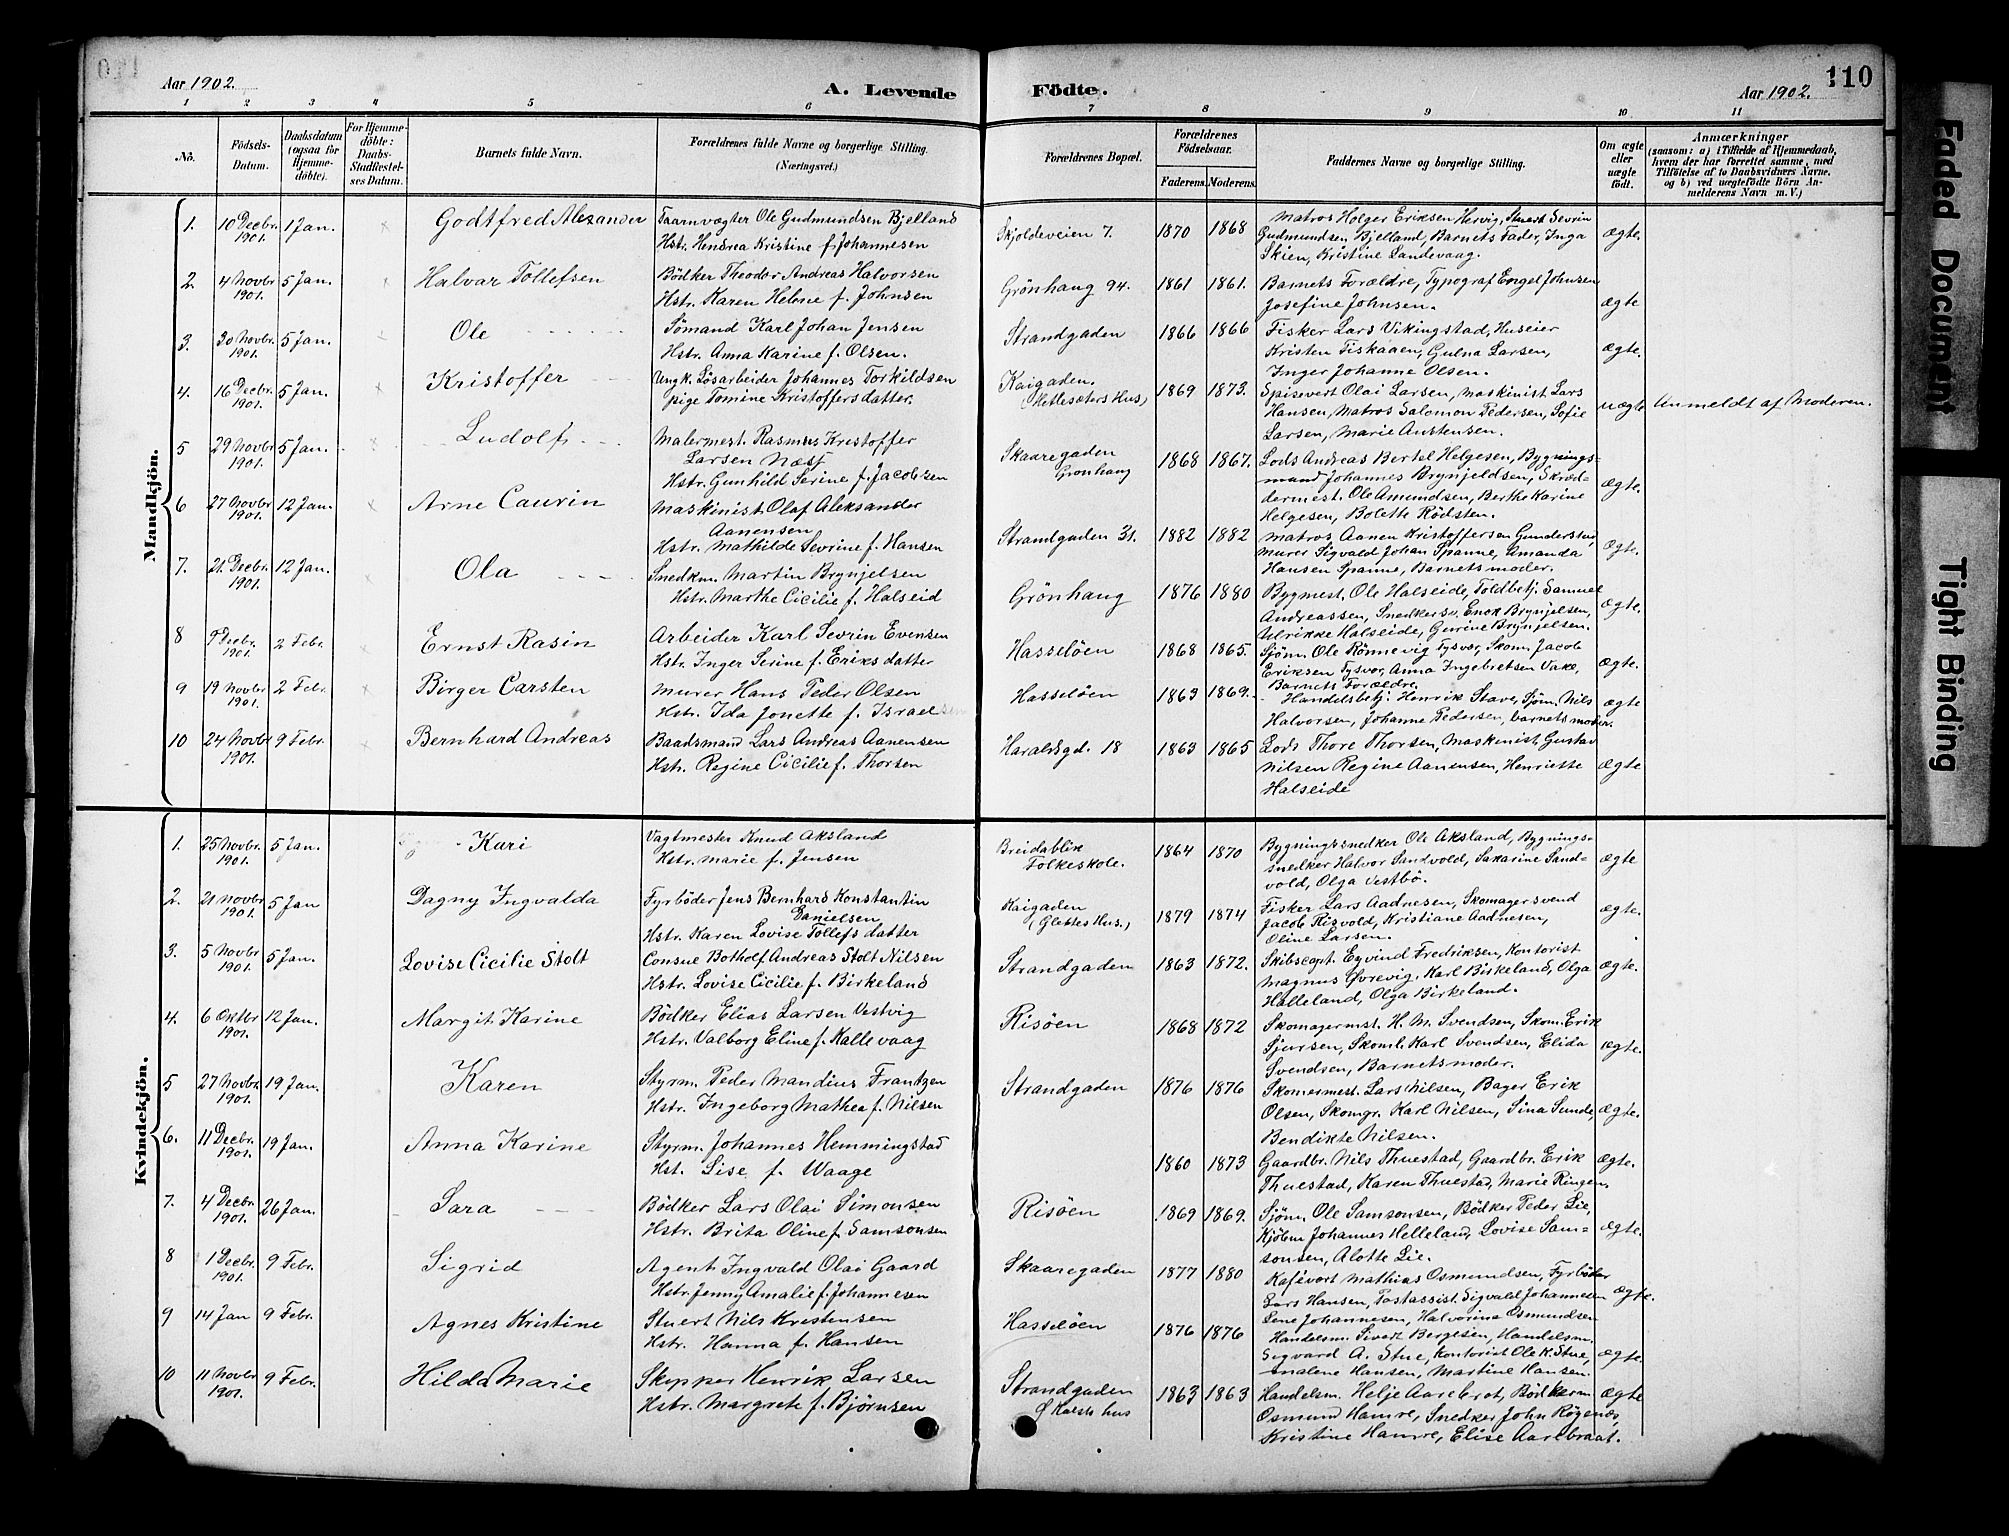 110
Aar 1902.
A. Levende Födte.
Aar 1902.
1 2 3 4 5 6 7 8 9 10 11
No.
Födsels-Datum.
Daabsdatum (ogsaa for Hjemmedöbte).
For Hjemmedöbte: Daabs-Stadfæstelses Datum.
Barnets fulde Navn.
Forældrenes fulde Navne og borgerlige Stilling. (Næringsvei.)
Forældrenes Bopæl.
Forældrenes Födselsaar.
Faderens. Moderens.
Faddernes Navne og borgerlige Stilling.
Om ægte eller uægte födt.
Anmærkninger
(saasom: a) i Tilfælde af Hjemmedaab, hvem der har forrettet samme, med Tilföielse af to Daabsvidners Navne, og b) ved uegtefödte Börn Anmelderens Navn m. V.)
Mandkjön.
1. 10 Decbr. 1901. 1 Jan. Godtfred Alexander
Taarnvægter Ole Gudmundsen Bjelland
Hstr. Hendrea Kristine f. Johannesen
Skjoldeveien 7. 1870 1868
Matros Holger Eriksen Hervig, Stuert Sevrin
Gudmundsen Bjelland, Barnets Fader, Inga
Skien, Kristine Landevaag.
ægte.
2. 4 Novbr. 1901. 5 Jan. Halvar Tollefsen
Bödker Theodor Andreas Halvorsen
Hstr. Karen Helene f. Johnsen
Grönhang 94. 1861 1861.
Barnets Forældre, Typograf Engel Johnsen
Josefine Johnsen.
ægte
3. 30 Novbr. 1901. 5 Jan. Ole
Sömand Karl Johan Jensen
Hstr. Anna Karine f. Olsen.
Strandgaden 1866 1866
Fisker Lars Vikingstad, Huseier
Kristen Fiskaaen, Gulna Larsen,
Inger Johanne Olsen.
ægte.
4. 16 Decbr. 1901. 5 Jan. Kristoffer
Ungk. Lösarbeider Johannes Torkildsen
pige Tomine Kristoffersdatter.
Kaigaden. (Hetlesæters Hus) 1869 1873.
Spisevert Olai Larsen, Maskinist Lars
Hansen, Matros Salomon Pedersen, Sofie
Larsen, Marie Austensen.
uægte Anmeldt af Moderen.
5 29 Novbr 1901. 5 Jan. Ludolf
Malermest. Rasmus Kristoffer
Larsen Næss
Hstr. Gunhild Serine f. Jacobsen
Skaaregaden Grönhang 1868 1867.
Lods Andreas Bertel Helgesen, Bygnings-
mand Johannes Brynjeldsen, Skræd-
dermest. Ole Amundsen, Berthe Karine
Helgesen, Bolette Rödsten.
ægte.
6 27 Novbr 1901. 12 Jan. Arne Caurin
Maskinist Olaf Aleksander
Aanensen
Hstr. Mathilde Sevrine f. Hansen
Strandgaden 31. 1882 1882
Matros Aanen Kristoffersen Gunderstad,
Murer Sigvald Johan Spanne, Amanda
Hansen Spanne, Barnets moder.
ægte.
7. 21. Decbr. 1901. 12 Jan. Ola
Snedkm. Martin Brynjelsen
Hstr. Marthe Cicilie f. Halseid
Grönhang 1876 1880
Bygmest. Ole Halseide, Toldbetj. Samuel
Andreassen, Snedkersv. Enok Brynjelsen,
Ulrikke Halseide, Gurine Brynjelsen.
ægte.
8 Decbr. 1901. 2 Febr. Ernst Rasin
Arbeider Karl Sevrin Evensen
Hstr. Inger Serine f. Eriksdatter
Hasselöen 1868 1865.
Sjöm. Ole Rönnevig Tysvor, Skom. Jacob
Eriksen Tysvor, Anna Ingebretsen Vake,
Barnets Forældre.
ægte.
9 19 Novbr 1901. 2 Febr. Birger Carsten
Murer Hans Peder Olsen
Hstr. Ida Jonette f. Israelsen
Hasselöen 1863 1869.
Handelsbetj. Henrik Stave, Sjöm. Nils
Halvorsen, Johanne Pedersen, barnets moder.
ægte
10 24 Novbr 1901. 9 Febr. Bernhard Andreas
Baadsmand Lars Andreas Aanensen
Hstr. Regine Cicilie f. Thorsen
Haraldsgd. 18 1863 1865
Lods Thore Thorsen, Maskinist Gustav
Nilsen Regine Aanensen, Henriette
Halseide
ægte
Kvindekjön.
1. 25 Novbr. 1901. 5 Jan. Kari
Vagtmester Knud Aksland
Hstr. Marie f. Jensen
Breidablik Folkeskole. 1864 1870
Bygningssnedker Ole Aksland, Bygnings-
snedker Halvor Sandvold, Sakarine Sand-
vold, Olga Vestbö.
ægte
2. 21 Novbr 1901. 5 Jan Dagny Ingvalda
Fyrböder Jens Bernhard Konstantin
Danielsen
Hstr. Karen Lovise Tollefsdatter
Kaigaden (Gletnes Hus.) 1879 1874
Fisker Lars Aadnesen, Skomagersvend
Jacob Risvold, Kristiane Aadnesen,
Oline Larsen.
ægte.
3. 5 Novbr 1901. 5 Jan. Lovise Cicilie Stolt
Consul Botholf Andreas Stolt Nilsen
Hstr. Lovise Cicilie f. Birkeland
Strandgaden 1863 1872.
Skibscapt. Eyvind Fredriksen, Kontorist
Magnus Övrevig, Karl Birkeland, Olga
Halleland, Olga Birkeland.
ægte.
4. 6 Oktbr 1901. 12 Jan. Margit Karine
Bödker Elias Larsen Vestvig
Hstr. Valborg Eline f. Kallevaag
Risöen 1868 1872
Skomagermst. H. M. Svendsen, Skom. Erik
Sjursen, Skoml. Karl Svendsen, Elida
Svendsen, Barnets moder.
ægte.
5 27 Novbr. 1901. 19 Jan. Karen
Styrm. Peder Mandius Frantzen
Hstr. Ingeborg Mathea f. Nilsen
Strandgaden 1876 1876
Skomermest. Lars Nilsen, Bager Erik
Olsen, Skomgr. Karl Nilsen, Sina Sunde,
Bendikte Nilsen.
ægte.
6. 11 Decbr. 1901. 19 Jan. Anna Karine
Styrm. Johannes Hemmingstad
Hst. Lise f. Waage
1860 1873
Gaardbr. Nils Thuestad, Gaardbr. Erik
Thuestad, Karen Thuestad, Marie Ringen.
ægte.
7. 4 Decbr. 1901. 26 Jan. Sara
Bödker Lars Olai Simonsen
Hstr. Brita Oline f. Samsonsen
Risöen 1869 1869.
Sjöm. Ole Samsonsen, Bödker Peder Lie,
Kjöbm Johannes Helleland, Lovise Sam-
sonsen, Alotte Lie.
ægte.
8 1 Decbr. 1901. 9 Febr. Sigrid
Agent Ingvald Olai Gaard
Hstr. Jenny Amalie f. Johannesen
Skaaregaden 1877 1880
Kafévert Mathias Osmundsen, Fyrböder
Lars Hansen, Postassist. Sigvald Johannesen
Lene Johannesen, Halvorine Osmundsen
ægte.
9 14 Jan 9 Febr. Agnes Kristine
Stuert Nils Kristensen
Hstr. Hanna f. Hansen
Hasselöen 1876 1876
Handelsm. Sivert Bergesen, Handelsm.
Sigvard A. Stue, Kontorist Ole K. Stue,
Malene Hansen, Martine Hansen.
ægte.
10 11 Novbr 1901. 9 Febr. Hilda Marie
Skipper Henrik Larsen
Hstr. Margrete f. Björnsen
Strandgaden 1863 1863
Handelsm. Helje Aarebrot, Bödkerm
Osmund Hamre, Snedker John Rögenæs,
Kristine Hamre, Elise Aarebraat.
ægte
Faded Document
Tight Binding